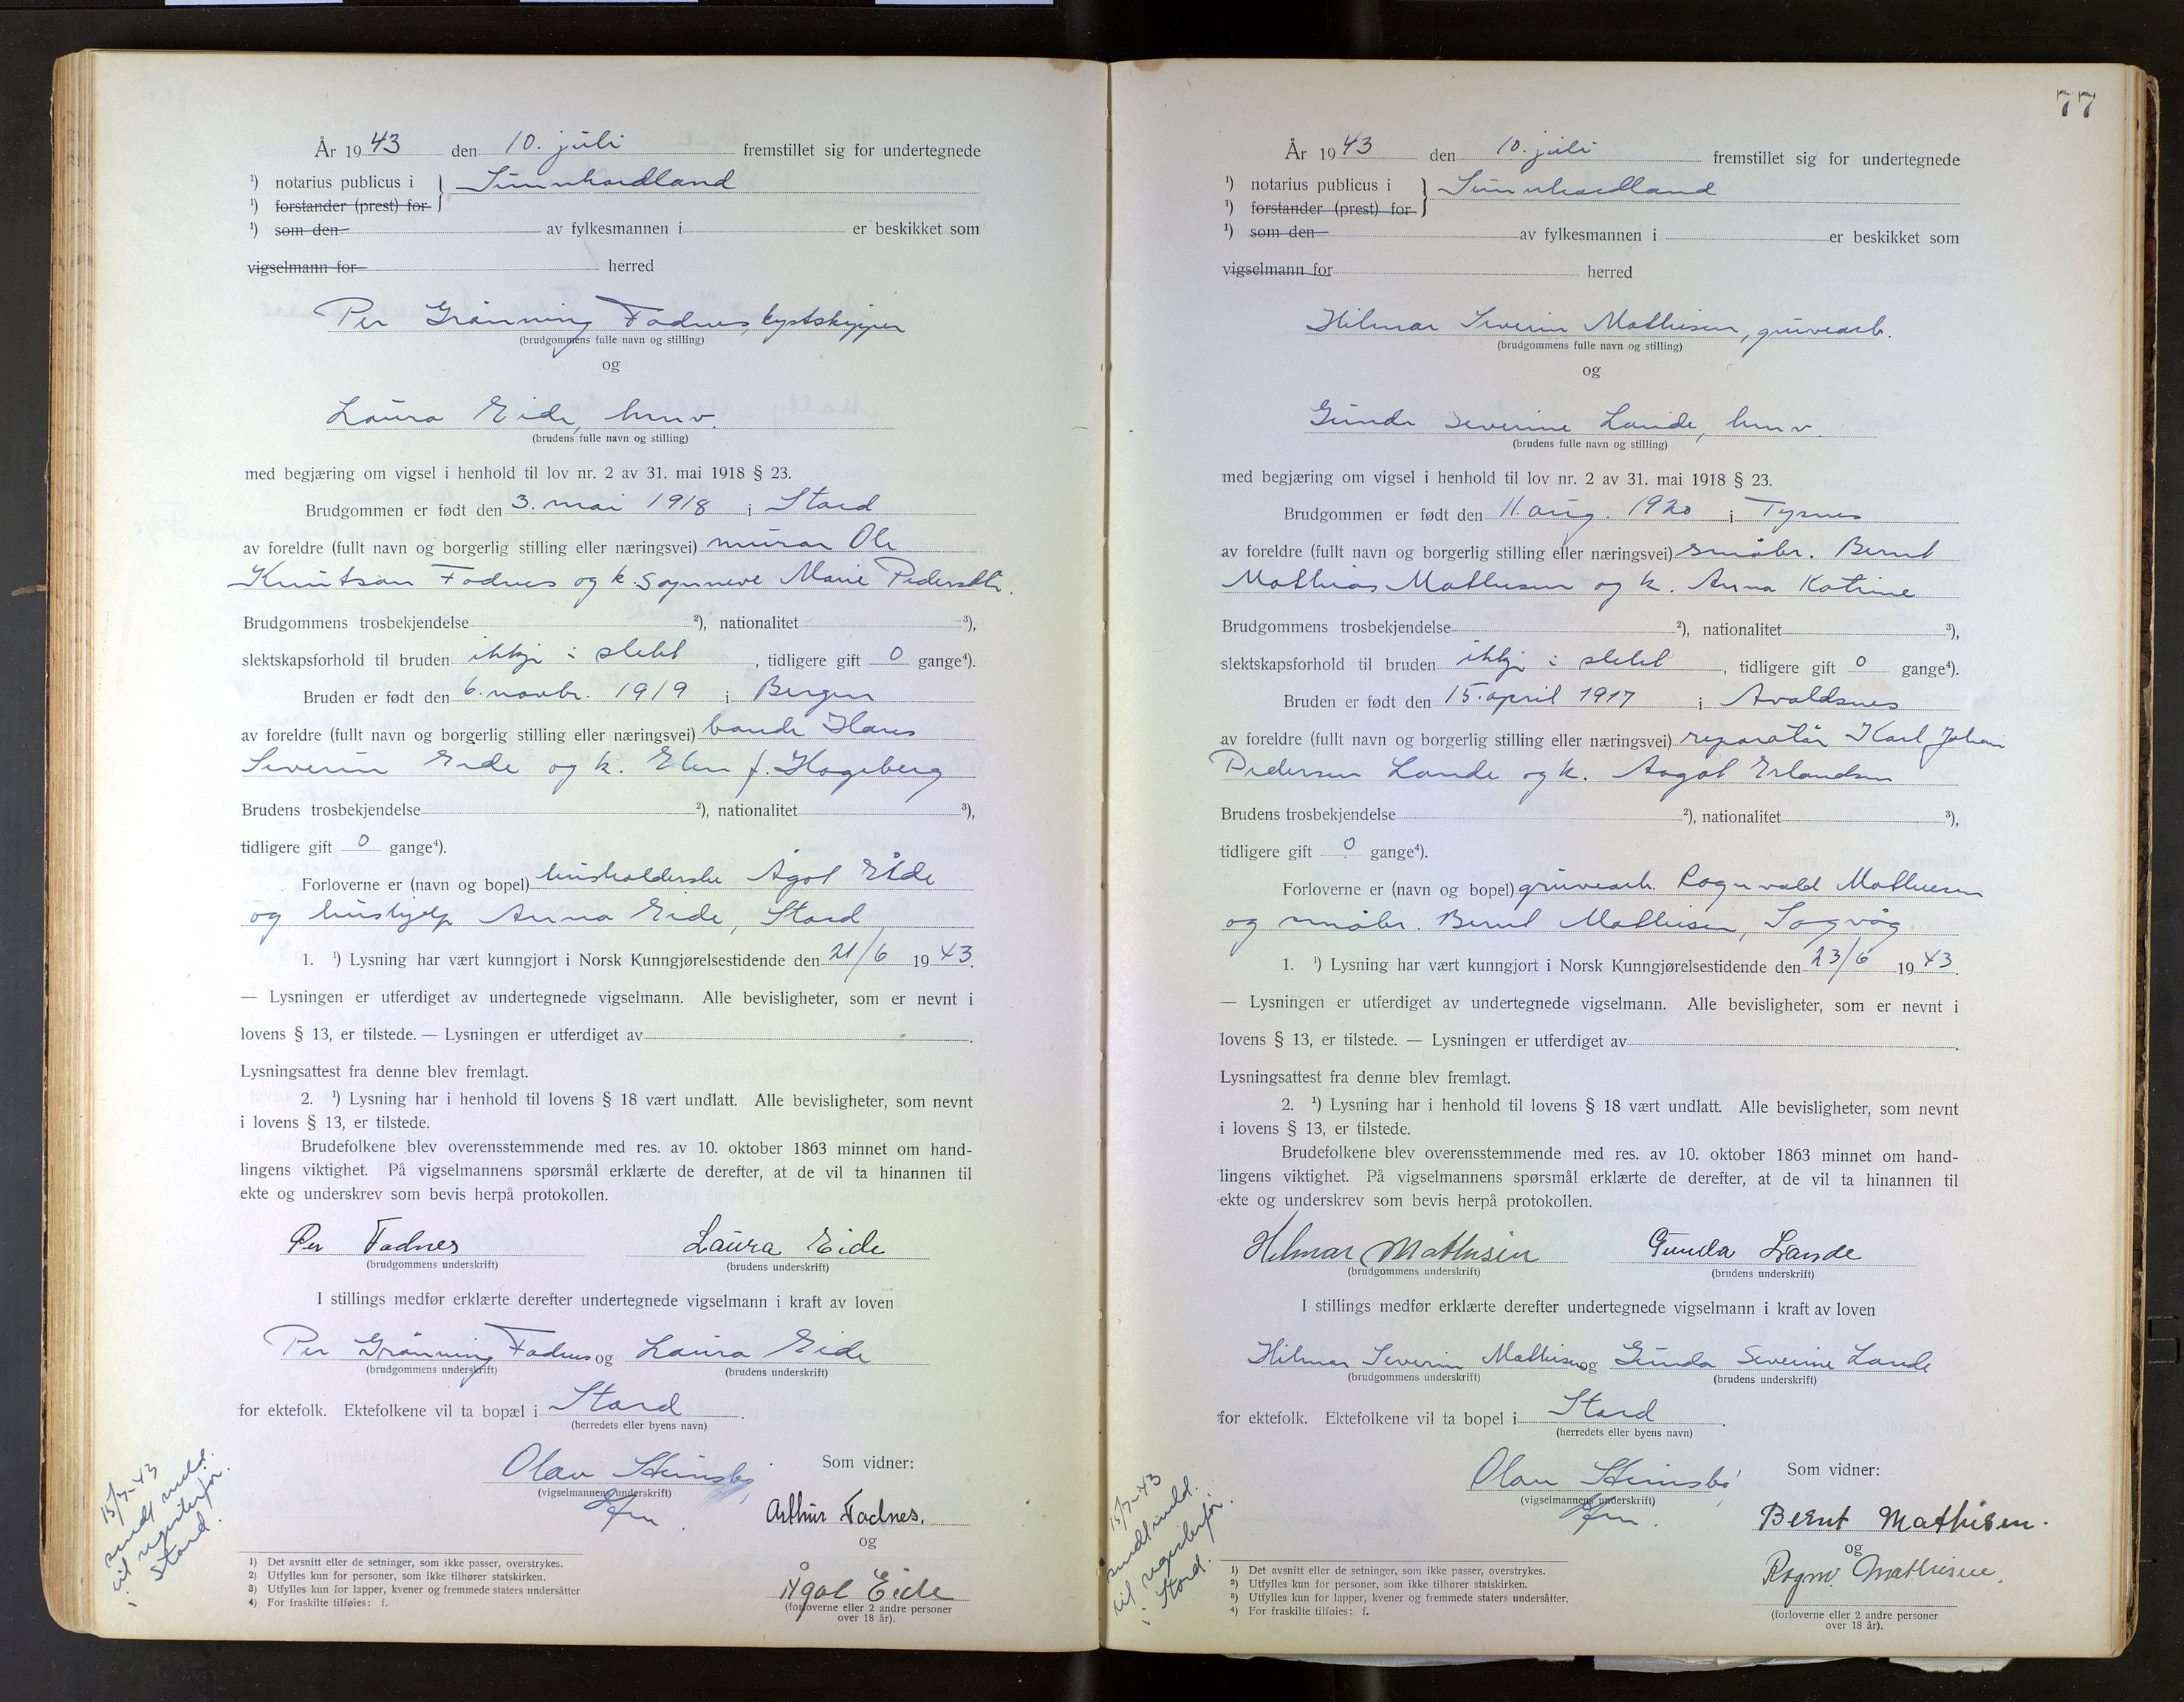 År 1943 den 10. juli fremstillet sig for undertegnede
¹) notarius publicus i } Sunnhordland
¹) forstander (prest) for
¹) som den av fylkesmannen i er beskikket som
vigselmann for herred
Per Grønning Fadnes, kystskipper
(brudgommens fulle navn og stilling)
og
Laura Eide, hmv.
(brudens fulle navn og stilling)
med begjæring om vigsel i henhold til lov nr. 2 av 31. mai 1918 § 23.
Brudgommen er født den 3. mai 1918 i Stord
av foreldre (fullt navn og borgerlig stilling eller næringsvei) murar Ole
Knutson Fadnes og k. Synneve Marie Pedersdtr.
Brudgommens trosbekjendelse ²), nationalitet ³),
slektskapsforhold til bruden ikkje i slekt, tidligere gift 0 gange⁴).
Bruden er født den 6. novbr. 1919 i Bergen
av foreldre (fullt navn og borgerlig stilling eller næringsvei) bonde Hans
Severin Eide og k. Elen f. Hageberg
Brudens trosbekjendelse ²), nationalitet ³),
tidligere gift 0 gange⁴).
Forloverne er (navn og bopel) husholderske Ågot Eide
og hushjelp Anna Eide, Stord
1. ¹) Lysning har vært kunngjort i Norsk Kunngjørelsestidende den 21/6 1943.
— Lysningen er utferdiget av undertegnede vigselmann. Alle bevisligheter, som er nevnt i
lovens § 13, er tilstede. — Lysningen er utferdiget av .
Lysningsattest fra denne blev fremlagt.
2. ¹) Lysning har i henhold til lovens § 18 vært undlatt. Alle bevisligheter, som nevnt
i lovens § 13, er tilstede.
Brudefolkene blev overensstemmende med res. av 10. oktober 1863 minnet om hand-
lingens viktighet. På vigselmannens spørsmål erklærte de derefter, at de vil ta hinannen til
ekte og underskrev som bevis herpå protokollen.
Per Fadnes Laura Eide
(brudgommens underskrift) (brudens underskrift)
I stillings medfør erklærte derefter undertegnede vigselmann i kraft av loven
Per Grønning Fadnes og Laura Eide
(brudgommens underskrift) (brudens underskrift)
for ektefolk. Ektefolkene vil ta bopæl i Stord.
(herredets eller byens navn)
Olav Steinsbø Som vidner:
(vigselmannens underskrift)
Arthur Fadnes.
og
Ågot Eide
(forloverne eller 2 andre personer
over 18 år).
15/7-43
sendt meld.
til registerfør.
i Stord.
1) Det avsnitt eller de setninger, som ikke passer, overstrykes.
2) Utfylles kun for personer, som ikke tilhører statskirken.
3) Utfylles kun for lapper, kvener og fremmede staters undersåtter
4) For fraskilte tilføies: f.
77
År 1943 den 10. juli fremstillet sig for undertegnede
¹) notarius publicus i } Sunnhordland
¹) forstander (prest) for
¹) som den av fylkesmannen i er beskikket som
vigselmann for herred
Hilmar Severin Mathisen, gruvearb.
(brudgommens fulle navn og stilling)
og
Gunda Severine Lande, hmv.
(brudens fulle navn og stilling)
med begjæring om vigsel i henhold til lov nr. 2 av 31. mai 1918 § 23.
Brudgommen er født den 11. aug. 1920 i Tysnes
av foreldre (fullt navn og borgerlig stilling eller næringsvei) småbr. Bernt
Mathias Mathisen og k. Anna Katrine
Brudgommens trosbekjendelse ²), nationalitet ³),
slektskapsforhold til bruden ikkje i slekt, tidligere gift 0 gange⁴).
Bruden er født den 15. april 1917 i Avaldsnes
av foreldre (fullt navn og borgerlig stilling eller næringsvei) reparatør Karl Johan
Pedersen Lande og k. Aagot Erlandsen
Brudens trosbekjendelse ²), nationalitet ³),
tidligere gift 0 gange⁴).
Forloverne er (navn og bopel) gruvearb. Ragnvald Mathisen
og småbr. Bernt Mathisen, Sagvåg
1. ¹) Lysning har vært kunngjort i Norsk Kunngjørelsestidende den 23/6 1943.
— Lysningen er utferdiget av undertegnede vigselmann. Alle bevisligheter, som er nevnt i
lovens § 13, er tilstede. — Lysningen er utferdiget av .
Lysningsattest fra denne blev fremlagt.
2. ¹) Lysning har i henhold til lovens § 18 vært undlatt. Alle bevisligheter, som nevnt
i lovens § 13, er tilstede.
Brudefolkene blev overensstemmende med res. av 10. oktober 1863 minnet om hand-
lingens viktighet. På vigselmannens spørsmål erklærte de derefter, at de vil ta hinannen til
ekte og underskrev som bevis herpå protokollen.
Hilmar Mathisen Gunda Lande
(brudgommens underskrift) (brudens underskrift)
I stillings medfør erklærte derefter undertegnede vigselmann i kraft av loven
Hilmar Severin Mathisen og Gunda Severine Lande
(brudgommens underskrift) (brudens underskrift)
for ektefolk. Ektefolkene vil ta bopel i Stord.
(herredets eller byens navn)
Olav Steinsbø Som vidner:
(vigselmannens underskrift)
Bernt Mathisen.
og
Ragnv. Mathisen.
(forloverne eller 2 andre personer
over 18 år).
15/7-43
sendt meld.
til registerfør.
i Stord.
1) Det avsnitt eller de setninger, som ikke passer, overstrykes.
2) Utfylles kun for personer, som ikke tilhører statskirken.
3) Utfylles kun for lapper, kvener og fremmede staters undersåtter.
4) For fraskilte tilføies: f.